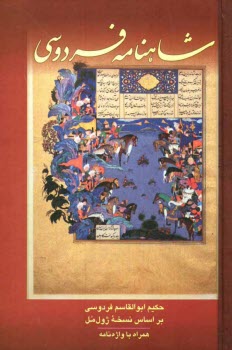 شاهنامه فردوسی
حکیم ابوالقاسم فردوسی
بر اساس نسخهٔ ژول مل
همراه با واژه‌نامه